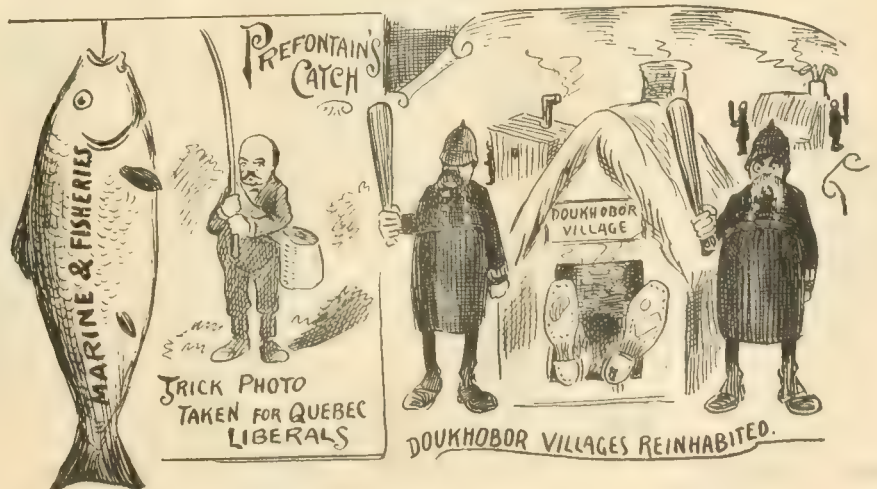 MARINE & FISHERIES
PREFONTAIN'S
CATCH
TRICK PHOTO
TAKEN FOR QUEBEC
LIBERALS
DOUKHOBOR
VILLAGE
DOUKHOBOR VILLAGES REINHABITED.